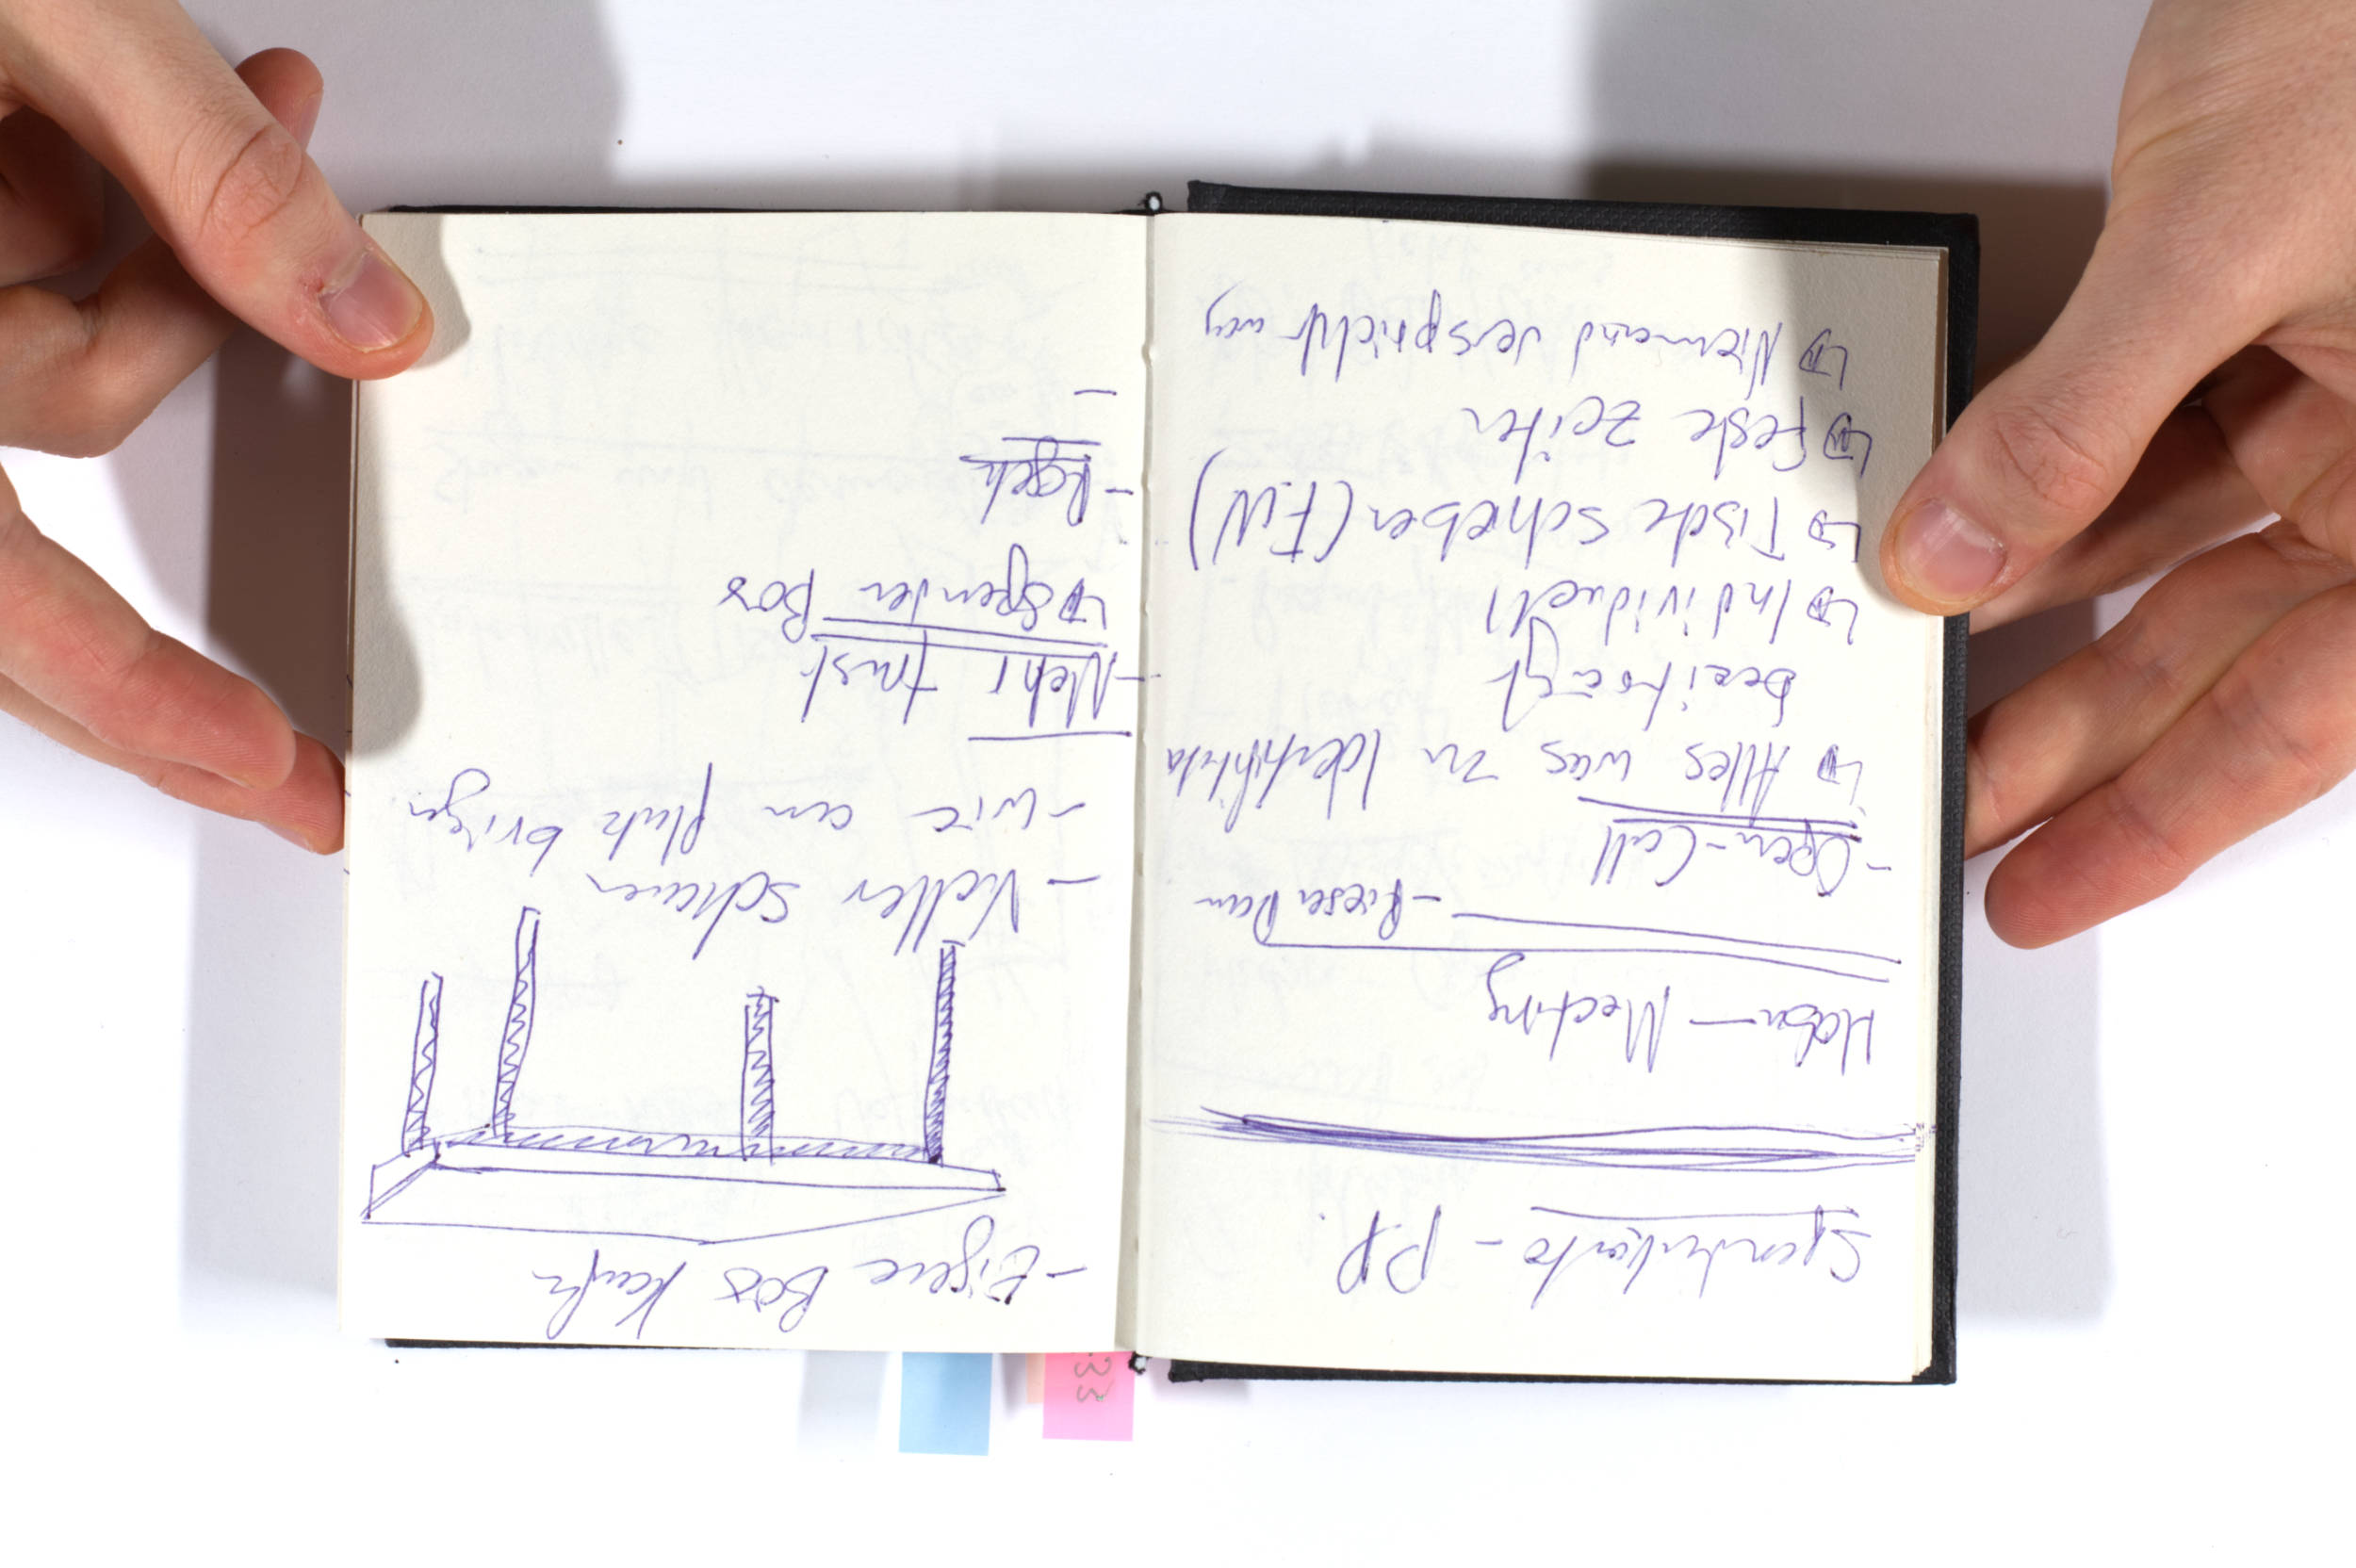 Spendenkonto - PP.
Hasen - Meeting
- Riesen Dan
- Open-Call
↳ Alles was zu Identität
beiträgt
↳ Individuell
↳ Tische schieben (F.W)
↳ feste Zeiten
↳ Niemand verspricht was
- Eigene Box kaufen
- Voller schauen
- wie an platz bringen
- Mehr trust
↳ Spenden Box
- Regeln
-
33